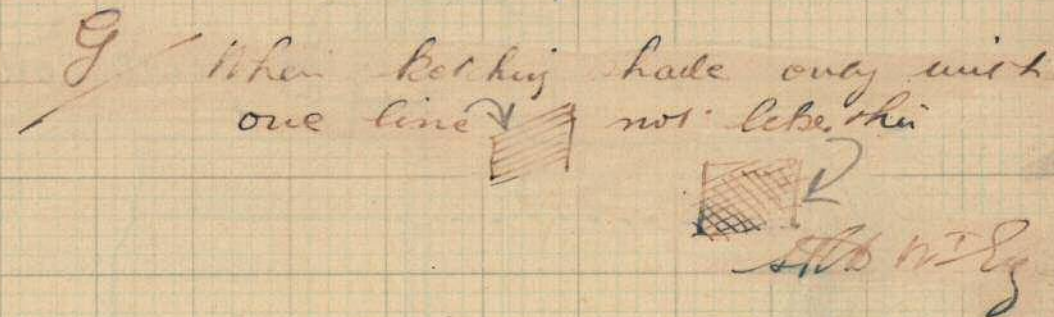 G/ When sketching shade only with
one line not like this